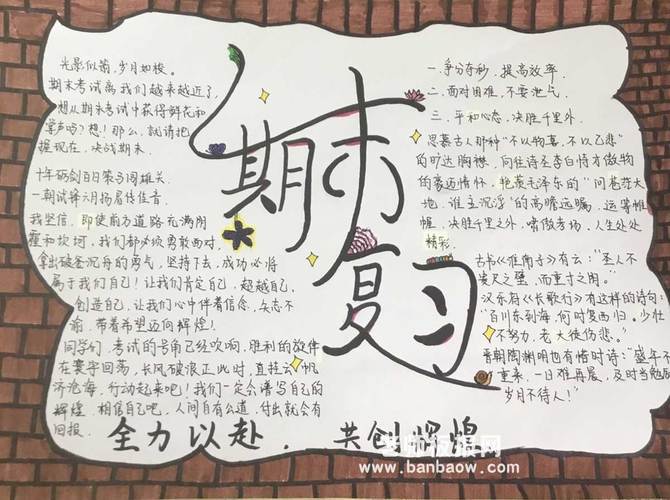 期末
复习
光景似箭,岁月如梭。
期末考试离我们越来越近了,
想从期末考试中获得鲜花和
掌声吗?想!那么,就请把
握现在,决战期末.
十年砺剑百日策马闯雄关
一朝试锋六月扬眉传佳音.
我坚信,即使前方道路充满阴
霾和坎坷,我们都必须勇敢面对,
拿出破釜沉舟的勇气,坚持下去,成功必将
属于我们自己!让我们肯定自己,超越自己,
创造自己,让我们心中伴着信念,矢志不
渝,带着希望迈向辉煌!
同学们,考试的号角已经吹响,胜利的歌伴
在寰宇回荡,长风破浪正此时,直挂云帆
济沧海,行动起来吧!我们一定会谱写自己的
辉煌,相信自己吧,人间自有公道,付出就会有
回报.
一.争分夺秒,提高效率.
二.面对困难,不要泄气.
三.平和心态,决胜千里外.
思慕古人那种"不以物喜,不以己悲"
的旷达胸襟,向往诗圣李白恃才傲物
的豪迈情怀,艳慕毛泽东的"问苍茫大
地,谁主沉浮"的高瞻远瞩,运筹帷
幄,决胜千里之外,啸傲考场,人生处处
精彩.
古书《淮南子》有云:"圣人不
贵尺之璧,而重寸之阴."
汉乐府《长歌行》有这样的诗句:
"百川东到海,何时复西归.少壮
不努力,老大徒伤悲."
晋朝陶渊明也有惜时诗:"盛年不
重来,一日难再晨,及时当勉励
岁月不待人!"
全力以赴.共创辉煌
老师板报网
www.banbaow.com